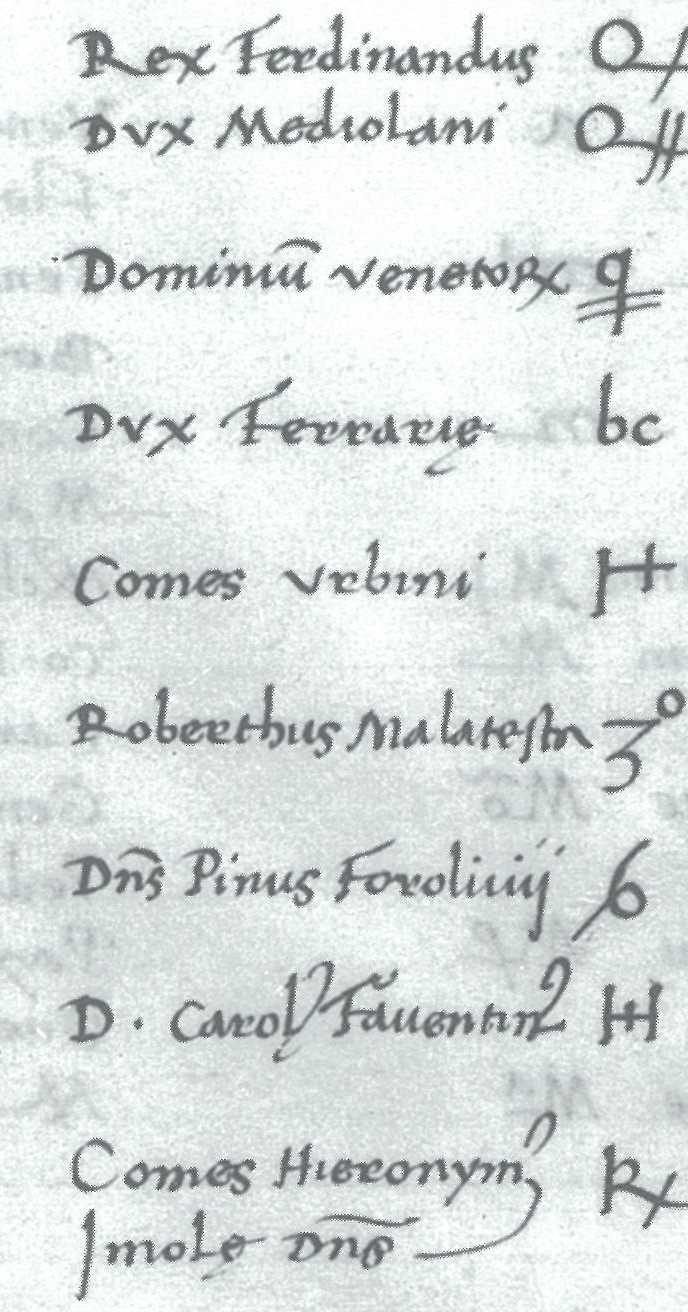 Rex Ferdinandus
Dvx Mediolani
Dominiũ venetoꝝ q
Dvx Ferrarię bc
Comes vrbini
Roberthus Malatesta 3º
Dn̄s Pinus Foroliuij 6
D. Carolꝰ Fauentinꝰ
Comes Hieronymꝰ ℞
Imolę Dn̄s